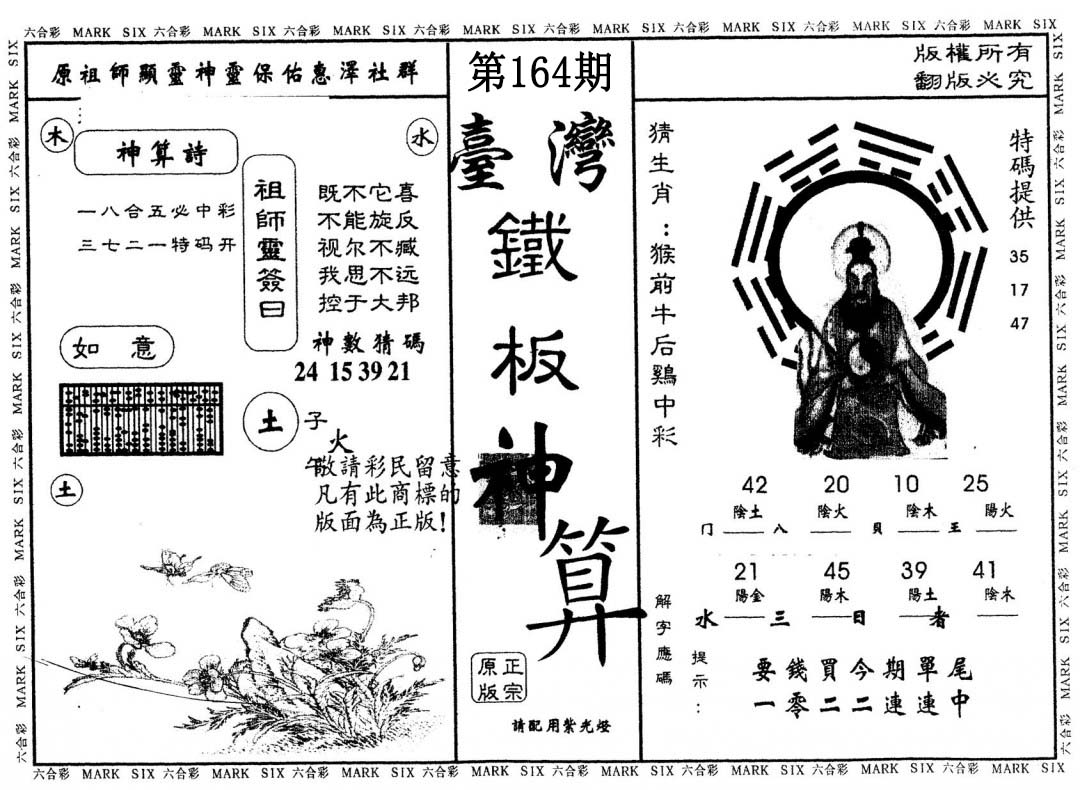 六合彩 MARK SIX 六合彩 MARK SIX 六合彩 MARK SIX 六合彩 MARK SIX 六合彩 MARK SIX 六合彩 MARK SIX 六合彩 MARK SIX 六合彩 MARK SIX
原祖師顯靈神靈保佑惠澤社群
第164期
版權所有
翻版必究
木
神算詩
水
一八合五必中彩
三七二一特码开
祖師靈簽曰
既不它喜
不能旋反
视尔不臧
我思不远
控于大邦
神數猜碼
24 15 39 21
如意
土
子
火
午
敬請彩民留意
凡有此商標的
版面為正版!
土
臺灣
鐵
板
神
算
正宗
原版
請配用紫光燈
猜生肖:猴前牛后鷄中彩
特碼提供
35
17
47
42 20 10 25
陰土 陰火 陰木 陽火
门 八 貝 王
21 45 39 41
陽金 陽木 陽土 陰木
水 三 日 者
解字應碼
提示:
要錢買今期單尾
一零二二連連中
六合彩 MARK SIX 六合彩 MARK SIX 六合彩 MARK SIX 六合彩 MARK SIX 六合彩 MARK SIX 六合彩 MARK SIX 六合彩 MARK SIX 六合彩 MARK SIX